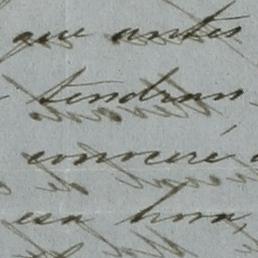 que antes
tendran
conoceré
esa hora,